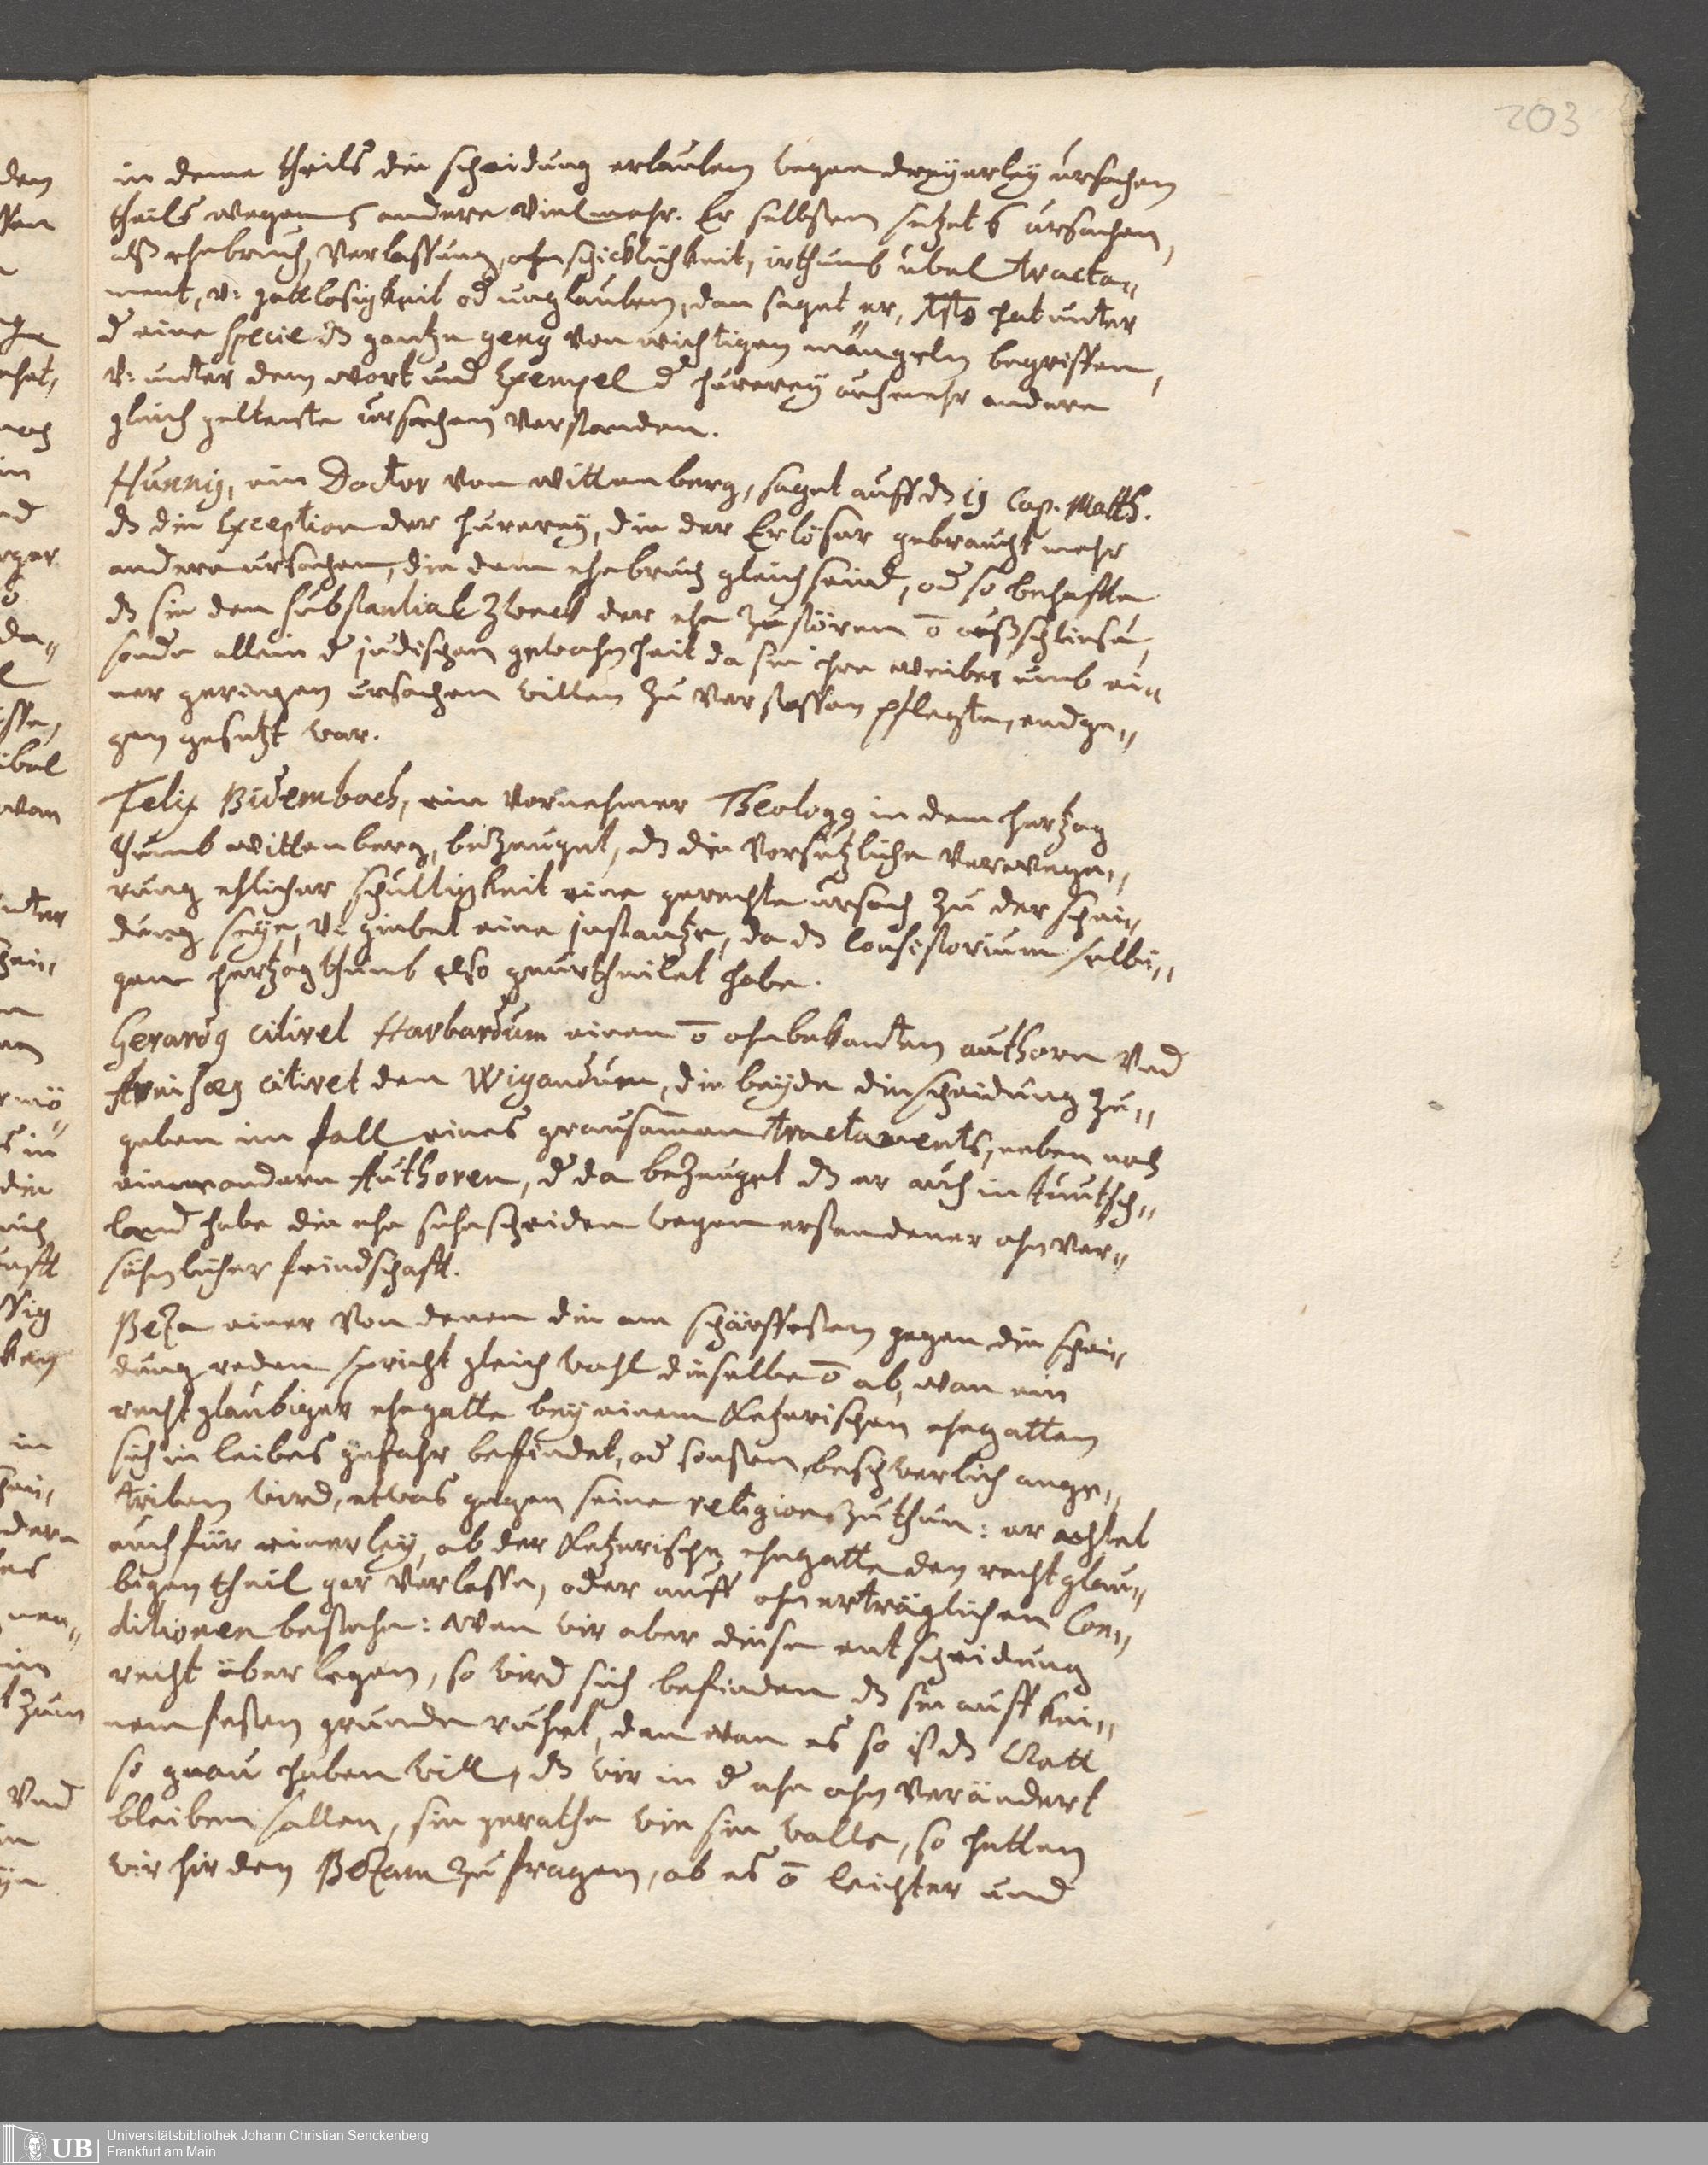 203
in deme theils die scheidung erlauben wegen dreyerley ursachen
theils wegen 5 andere viel mehr. Er selbsten setzet 6 ursachen,
alß ehebruch, verlassung, ohnschicklichkeit, irthumb übel tracta„
ment, v: gottlosigkeit od unglauben, dan saget er, Xstus hat unter
d eine specie dz gantze geng von wichtigen mängeln begriffen,
v: unter dem wort und Exempel d hurerey auch mehr andere
gleich geltente ursachen verstanden.
Hunnig, ein Doctor von wittenberg, saget auff dz 19 Cap. Matth.
dz die Exception der hurerey, die der Erlöser gebraucht mehr
andere ursachen, die dem ehebruch gleich seind, od so behafft
dz sie den substantial zweck der ehe zustören o außschliese,
sonde allein d jüdischen gewohnheit da sie ihre weiber umb ei„
ner geringen ursachen willen zu verstossen pflegten, endge„
gen gesetzt war.
Felix Bidembach, ein vornehmer Theologg in dem hertzog
thumb wittenberg, bezeuget, dz die vorsetzliche verwege„
rung ehlicher schultigkeit eine gerechte ursach zu der schei„
dung seye, v: giebet eine instantze, da dz Consistorium selbi„
gem hertzogthumb also geurtheilet habe.
Gerardg citiret Harbardum einen o ohnbekanten authorn Vnd
citiret den Wigandum, die beyde die scheidung zu„
geben im fall eines grausamen tractaments, neben noch
einem andern Authoren, d da bezeuget dz er auch in teutsch„
land habe die ehe sehe scheiden wegen erstandener ohnver„
söhnlicher feindschafft.
Beza einer von denen die am schärffesten gegen die schei„
dung reden spricht gleich wohl dieselbe o ab, wan ein
rechtglaubiger ehegatte bey einem Ketzerischen ehegatten
sich in leibes gefahr befindet, od sonsten beschwerlich ange„
triben wird, etwas gegen seine religion zu thun: er achtet
auch für einerley, ob der Ketzerische ehegatte den rechtglau„
bigen theil gar verlasse, oder auff ohnerträglichen Con„
ditionen bestehe: Wan wir aber diese entscheidung
recht überlegen, so wird sich befinden dz sie auff kei„
nem festen grunde ruhet, dan wan es so ist dz Gott
so genau haben will, dz wir in d ehe ohnverändert
bleiben sollen, sie gerathe wie sie wolle, so hetten
wir hir den Bezam zu fragen, ob es o leichter und
Universitätsbibliothek Johann Christian Senckenberg
Frankfurt am Main
UB